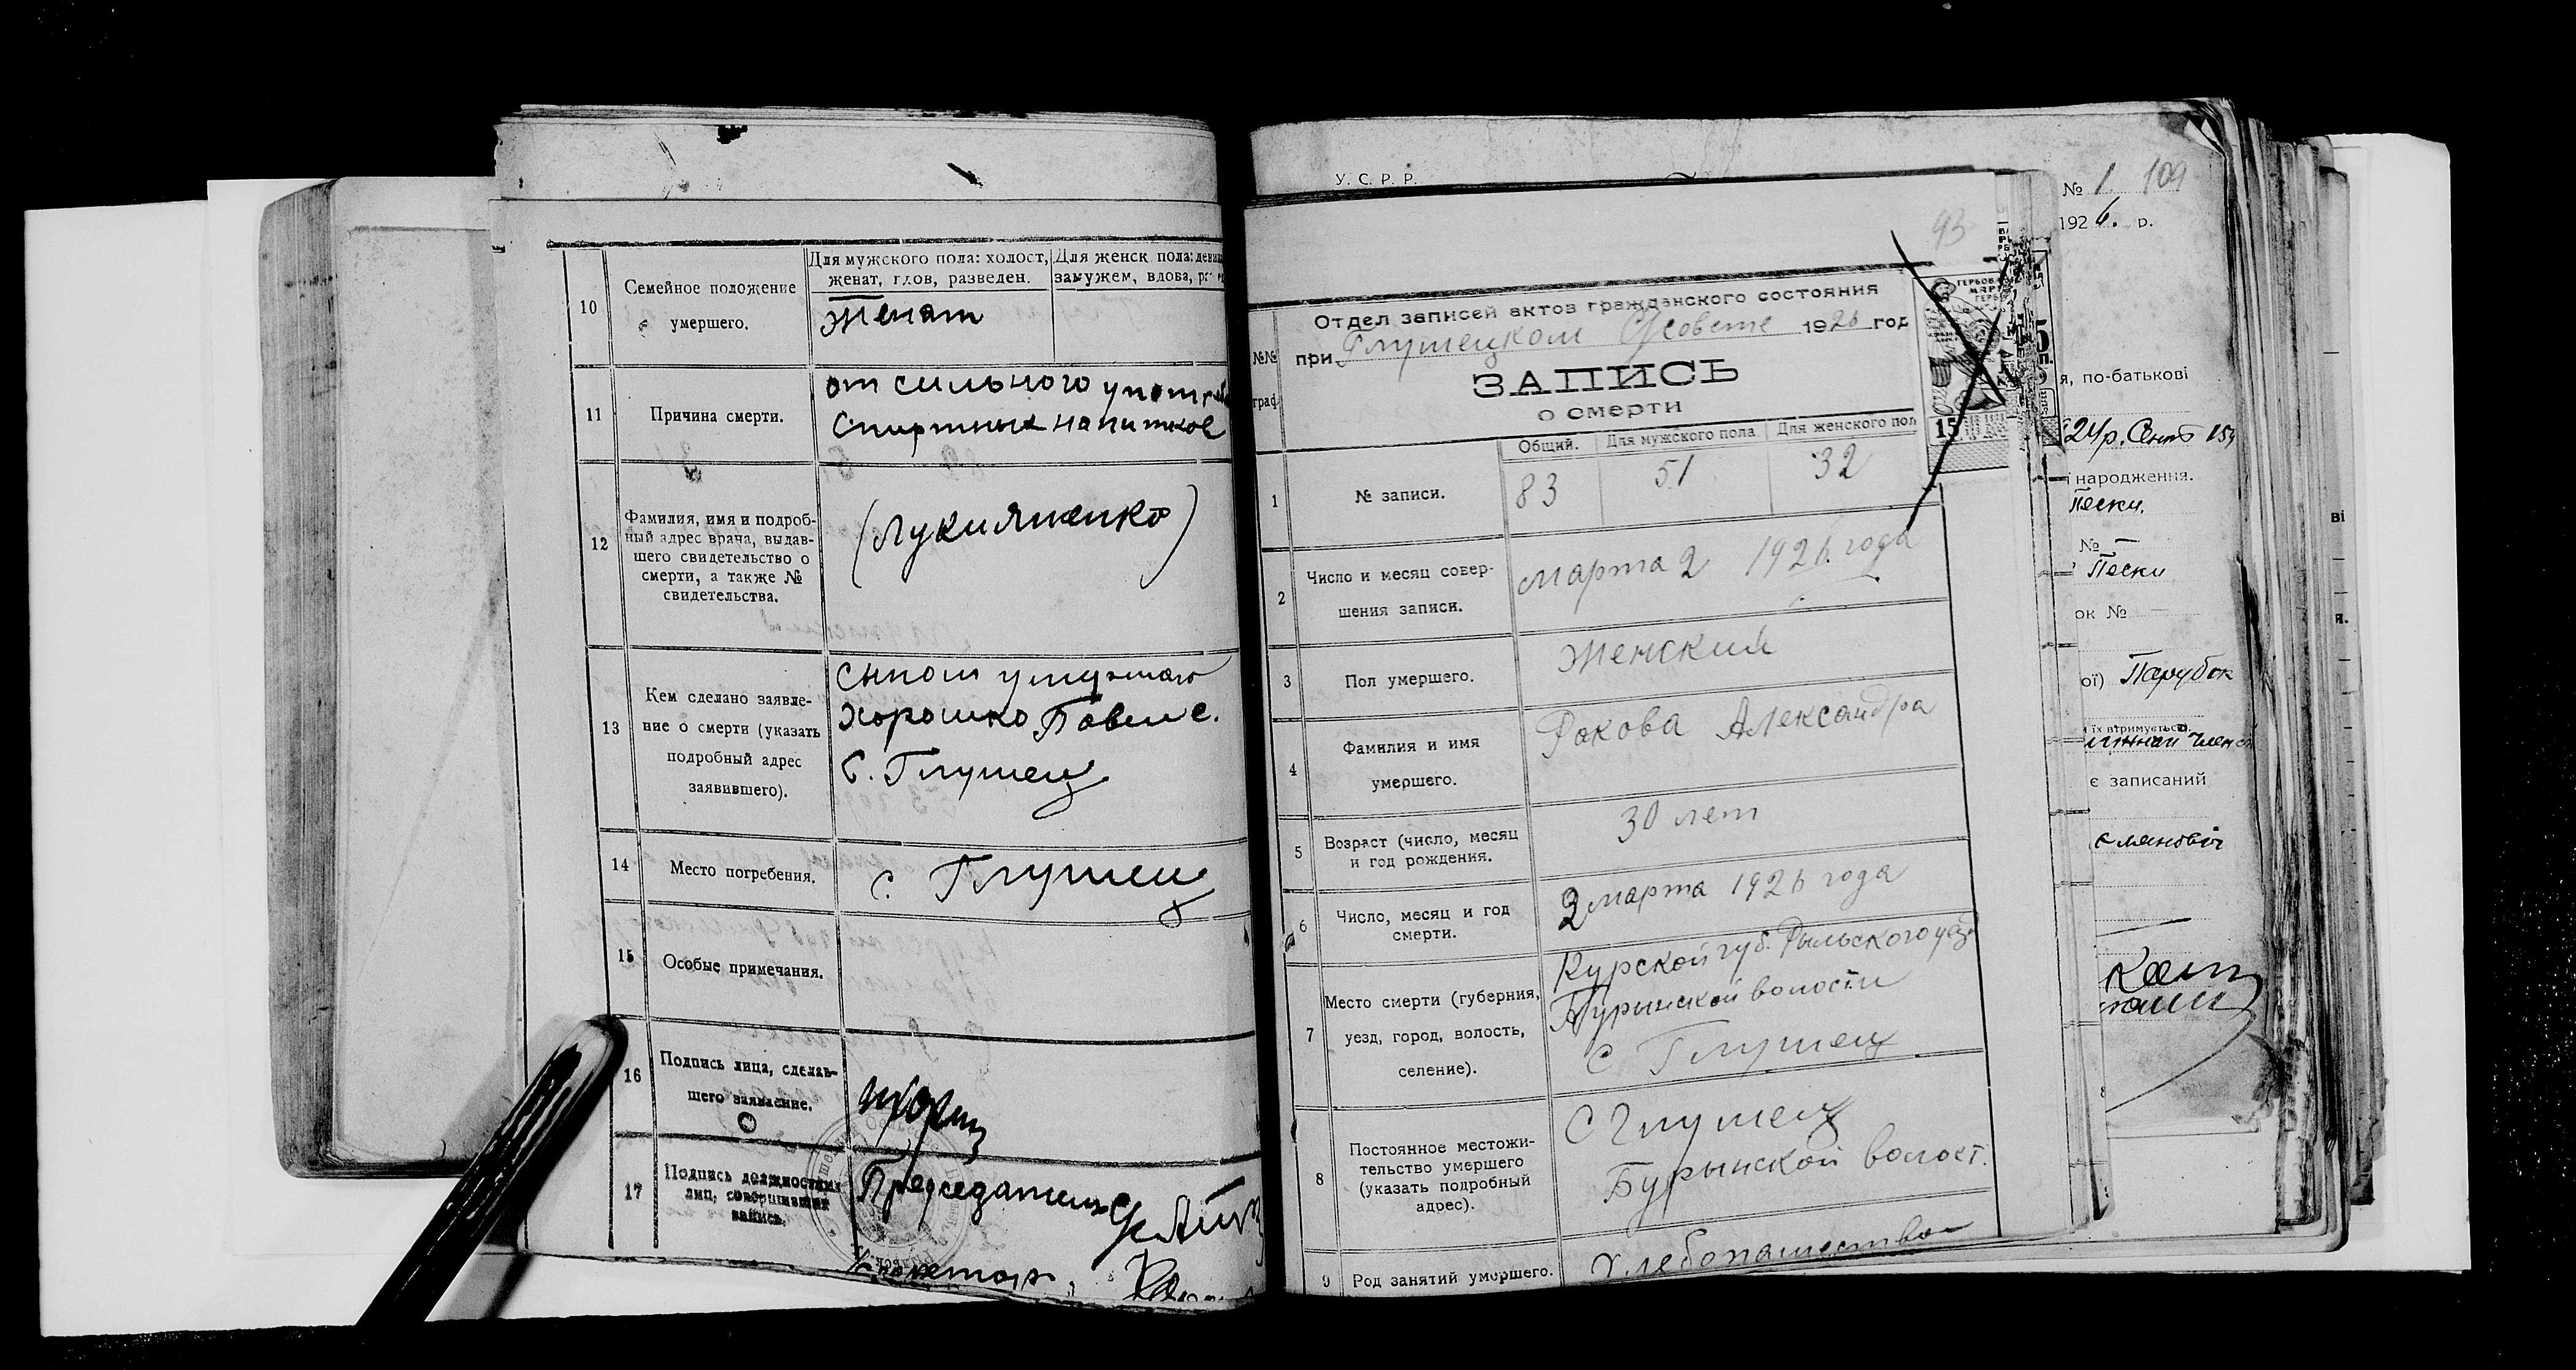 10
Семейное положение
умершего.
Для мужского пола: холост,
женат, вдов, разведен.
Для женск. пола: девиц
замужем, вдова,
Женат
11
Причина смерти.
от сильного употреб
Спиртных напитков
12
Фамилия, имя и подроб-
ный адрес врача, выдав-
шего свидетельство о
смерти, а также №
свидетельства.
(Лукияненко)
13
Кем сделано заявле-
ние о смерти (указать
подробный адрес
заявившего).
сыном
Хорошко Павел с.
С. Глушец
14
Место погребения.
с. Глушец
15
Особые примечания.
16
Подпись лица, сделав-
шего заявление.
17
Подпись должностных
лиц, совершивших
запись.
Председатель
У. С. Р. Р.
93
Отдел записей актов гражданского состояния
при Глушецком С/совете 1926 год
№№
граф
ЗАПИСЬ
о смерти
15
Общий.
Для мужского пола
Для женского пол
1
№ записи.
83
51
32
2
Число и месяц совер-
шения записи.
Марта 2 1926 года
3
Пол умершего.
Женский
4
Фамилия и имя
умершего.
Рокова Александра
5
Возраст (число, месяц
и год рождения.
30 лет
6
Число, месяц и год
смерти.
2 марта 1926 года
7
Место смерти (губерния,
уезд, город, волость,
селение).
Курской губ. Рыльского уез
Бурынской волости
с Глушец
8
Постоянное местожи-
тельство умершего
(указать подробный
адрес).
С Глушец
Бурынской волост.
9
Род занятий умершего.
Хлебопашество
№ 1 109
1926. р.
я, по-батькові
24р. Сент 15
і народження.
Пески.
№ —
Пески
ок № —
ої) Парубок
їх втримується).
є записаний
ві
я.